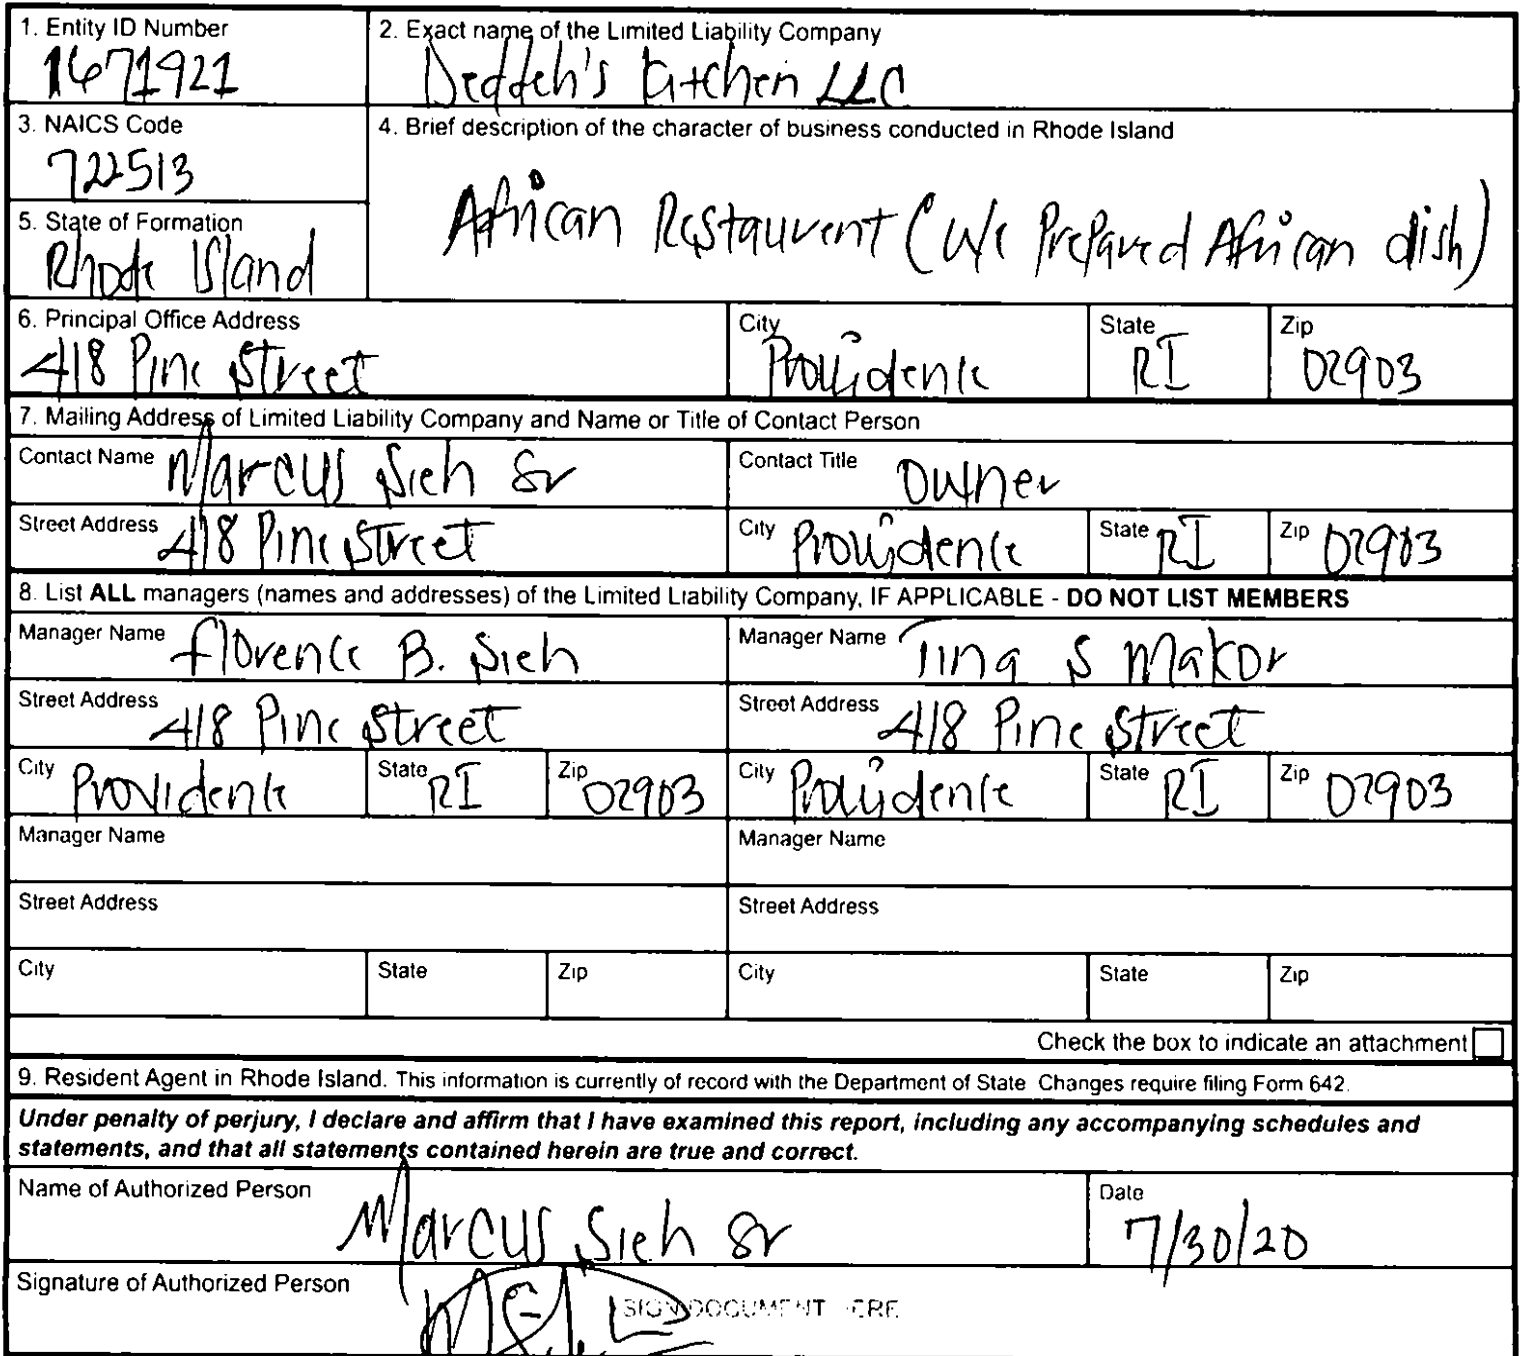 1. Entity ID Number
1671921
2. Exact name of the Limited Liability Company
Deddeh's Kitchen LLC
3. NAICS Code
722513
4. Brief description of the character of business conducted in Rhode Island
African Restaurent (We Prepared African dish)
5. State of Formation
Rhode Island
6. Principal Office Address
418 Pine Street
City
Providence
State
RI
Zip
02903
7. Mailing Address of Limited Liability Company and Name or Title of Contact Person
Contact Name Marcus Sieh Sr
Contact Title Owner
Street Address 418 Pine Street
City Providence
State RI
Zip 02903
8. List ALL managers (names and addresses) of the Limited Liability Company, IF APPLICABLE - DO NOT LIST MEMBERS
Manager Name Florence B. Sieh
Manager Name Tina S Makor
Street Address 418 Pine Street
Street Address 418 Pine Street
City Providence
State RI
Zip 02903
City Providence
State RI
Zip 02903
Manager Name
Manager Name
Street Address
Street Address
City
State
Zip
City
State
Zip
Check the box to indicate an attachment
9. Resident Agent in Rhode Island. This information is currently of record with the Department of State Changes require filing Form 642.
Under penalty of perjury, I declare and affirm that I have examined this report, including any accompanying schedules and
statements, and that all statements contained herein are true and correct.
Name of Authorized Person
Marcus Sieh Sr
Date
7/30/20
Signature of Authorized Person
SIGN DOCUMENT HERE